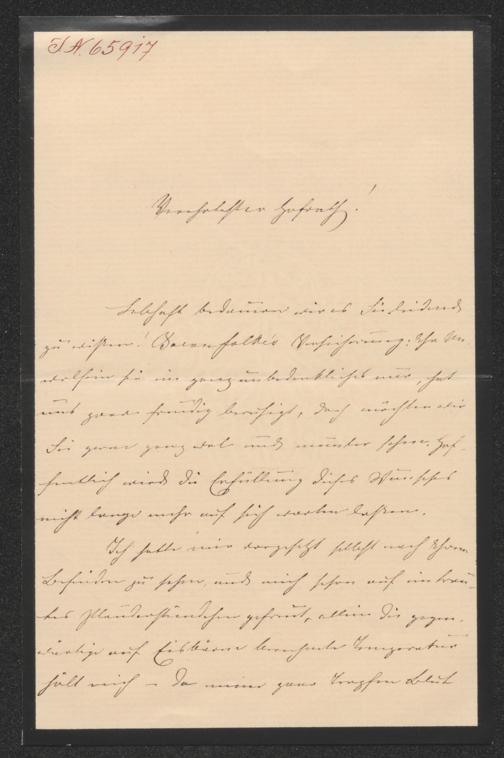 I.N. 65917
Verehrtester Hofrath!
Lebhaft bedauern wir es Sie leidend
zu wissen! Versicherung, Ihr Un-
wolsein sei ein ganz unbedenkliches nur, hat
uns zwar freudig beruhigt, doch möchten wir
Sie gerne ganz wol und munter sehen. Hof-
fentlich wird die Erfüllung dieses Wunsches
nicht lange mehr auf sich warten lassen.
Ich hatte mir vorgesetzt selbst nach Ihrem
Befinden zu sehen, und mich schon auf ein trau-
tes Plauderstündchen gefreut, allein die gegen-
wärtige auf Eisbären berechnete Temperatur
hält mich – da meine paar Tropfen Blut